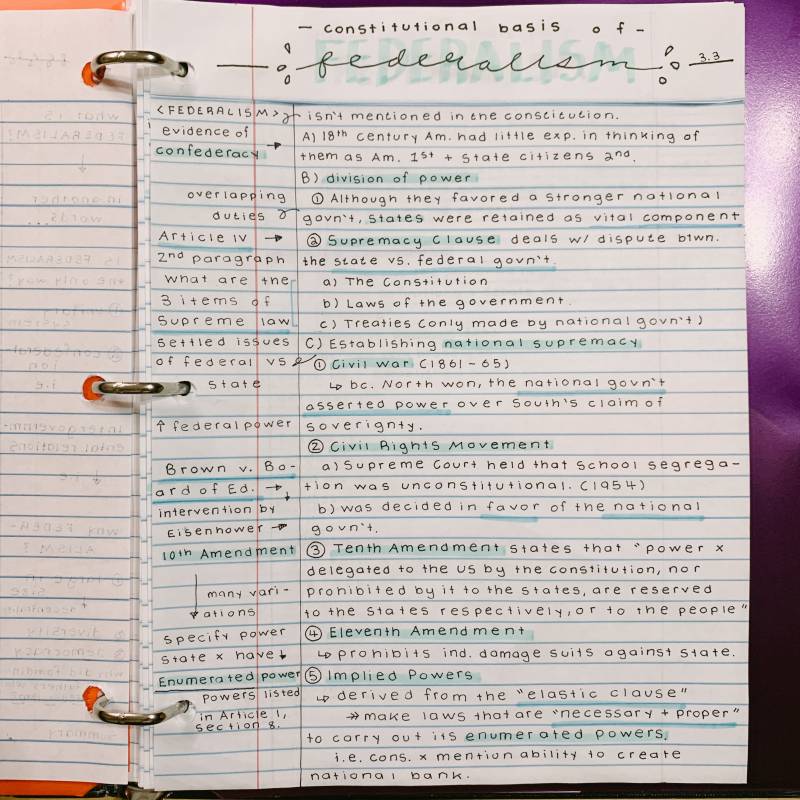 - constitutional basis of -
FEDERALISM
federalism
3.3
<FEDERALISM> isn't mentioned in the constitution.
evidence of
confederacy →
A) 18th century Am. had little exp. in thinking of
them as Am. 1st + state citizens 2nd.
B) division of power
overlapping
duties
① Although they favored a stronger national
govn't, states were retained as vital component
Article IV →
2nd paragraph
② Supremacy Clause deals w/ dispute btwn.
the state vs. federal govn't.
what are the
3 items of
Supreme law
a) The Constitution
b) Laws of the government.
c) Treaties (only made by national govn't)
settled issues
of federal vs
state
C) Establishing national supremacy
① Civil War (1861-65)
↳ bc. North won, the national govn't
asserted power over South's claim of
soverignty.
↑ federal power
② Civil Rights Movement
Brown v. Bo-
ard of Ed. →
intervention by ↓
Eisenhower →
a) Supreme Court held that school segrega-
tion was unconstitutional. (1954)
b) was decided in favor of the national
govn't.
10th Amendment
↓ many vari-
ations
③ Tenth Amendment states that "power x
delegated to the US by the constitution, nor
prohibited by it to the states, are reserved
to the states respectively, or to the people"
specify power
state x have ↓
④ Eleventh Amendment
↳ prohibits ind. damage suits against state.
Enumerated power
powers listed
in Article 1,
section 8.
⑤ Implied Powers
↳ derived from the "elastic clause"
↠ make laws that are "necessary + proper"
to carry out its enumerated powers.
i.e. cons. x mention ability to create
national bank.